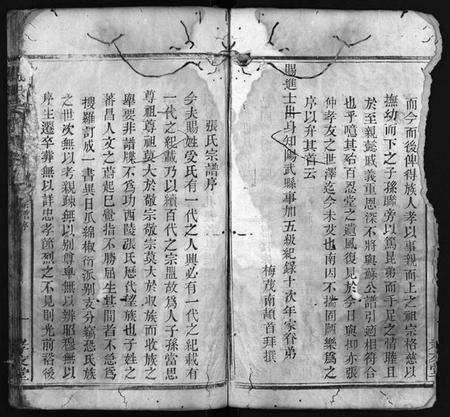 而今而後俾得族人孝以事親而上之祖宗格慈以
撫幼而下之子孫聯旁以篤昆弟而手足之情雍且
於至親懿戚義重恩深不將與蘇公譜引適相符合
也乎噫其殆百忍堂之遺風復見於今日與抑亦張
仲孝友之世澤迄今未艾也南因不揣固陋樂為之
序以弁其首云
賜進士出身知陽武縣事加五級紀錄十次年家眷弟
梅茂南頓首拜撰
張氏宗譜序
今夫賜姓受氏有一代之人興必有一代之紀載有
一代之紀載乃以續百代之宗盟故為人子孫當思
尊祖尊祖莫大於敬宗敬宗莫大於收族而收族之
舉要非譜牒不為功西陵張氏歷代望族也子姓之
蕃昌人文之蔚起已覺指不勝屈生其間者不急為
搜羅訂成一書異日瓜綿椒衍派別支分竊恐氏族
之世次無以考親疎無以別尊卑無以辨昭穆無以
序生遷卒葬無以詳忠孝節烈之不見則光前裕後